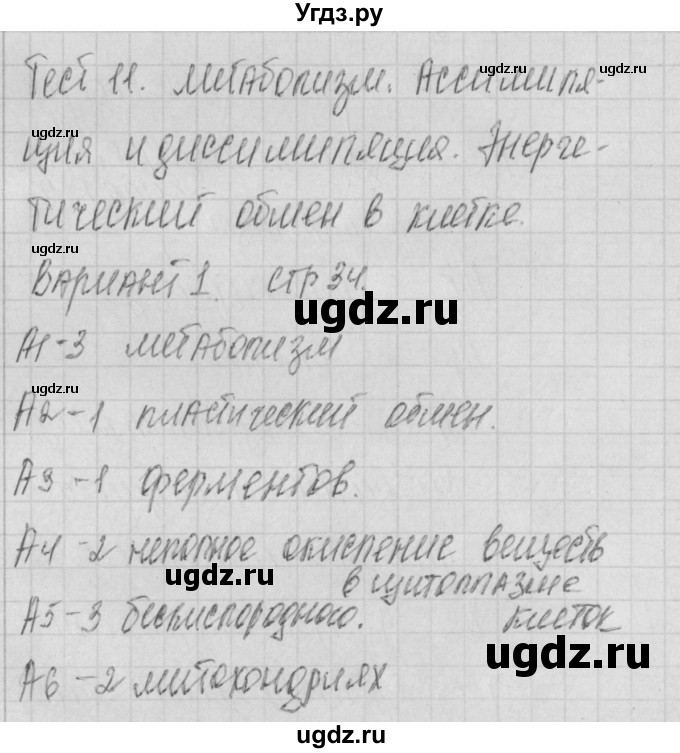 Угдз.ру
Тест 11. Метаболизм. Ассимиля-
ция и диссимиляция. Энерге-
тический обмен в клетке.
Вариант 1. стр 34.
А1-3 метаболизм
А2-1 пластический обмен.
А3-1 ферментов.
А4-2 неполное окисление веществ
в цитоплазме
клеток
А5-3 бескислородного.
А6-2 митохондриях
ugdz.ru
ugdz.ru
ugdz.ru
ugdz.ru
ugdz.ru
ugdz.ru
ugdz.ru
ugdz.ru
ugdz.ru
ugdz.ru
ugdz.ru